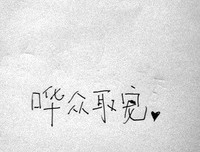 哗众取宠。